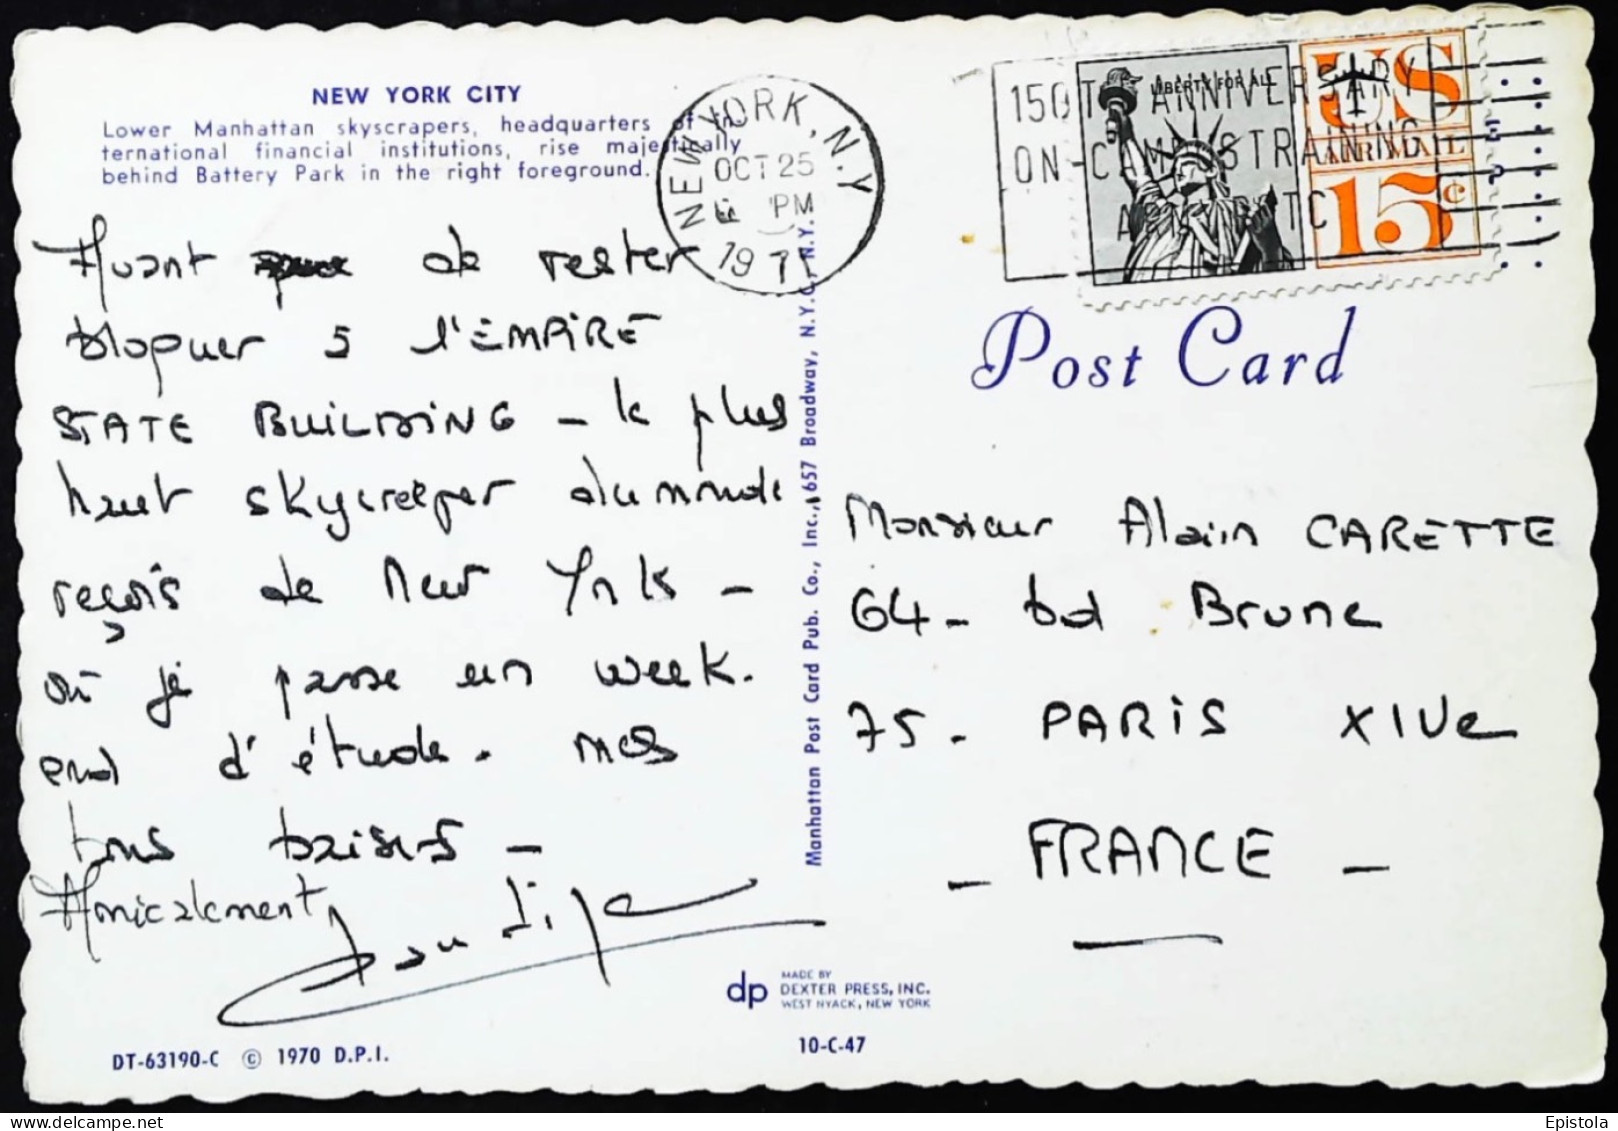 NEW YORK CITY
Lower Manhattan skyscrapers, headquarters of in-
ternational financial institutions, rise majestically
behind Battery Park in the right foreground.
Avant de rester
bloquer à l'EMPIRE
STATE BUILDING – le plus
haut skycreeper du monde
reçois de New York –
où je passe un week.
end d'étude. mes
bons baisers –
Amicalement,
NEW YORK, N.Y
OCT 25
PM
1971
150TH ANNIVERSARY
ON-CAMPUS TRAINING
LIBERTY FOR ALL
US
AIR MAIL
15c
Post Card
Monsieur Alain CARETTE
64 – bd Brune
75 – PARIS XIVe
– FRANCE –
Manhattan Post Card Pub. Co., Inc., 657 Broadway, N.Y.C., N.Y.
dp
MADE BY
DEXTER PRESS, INC.
WEST NYACK, NEW YORK
DT-63190-C © 1970 D.P.I.
10-C-47
Epistola